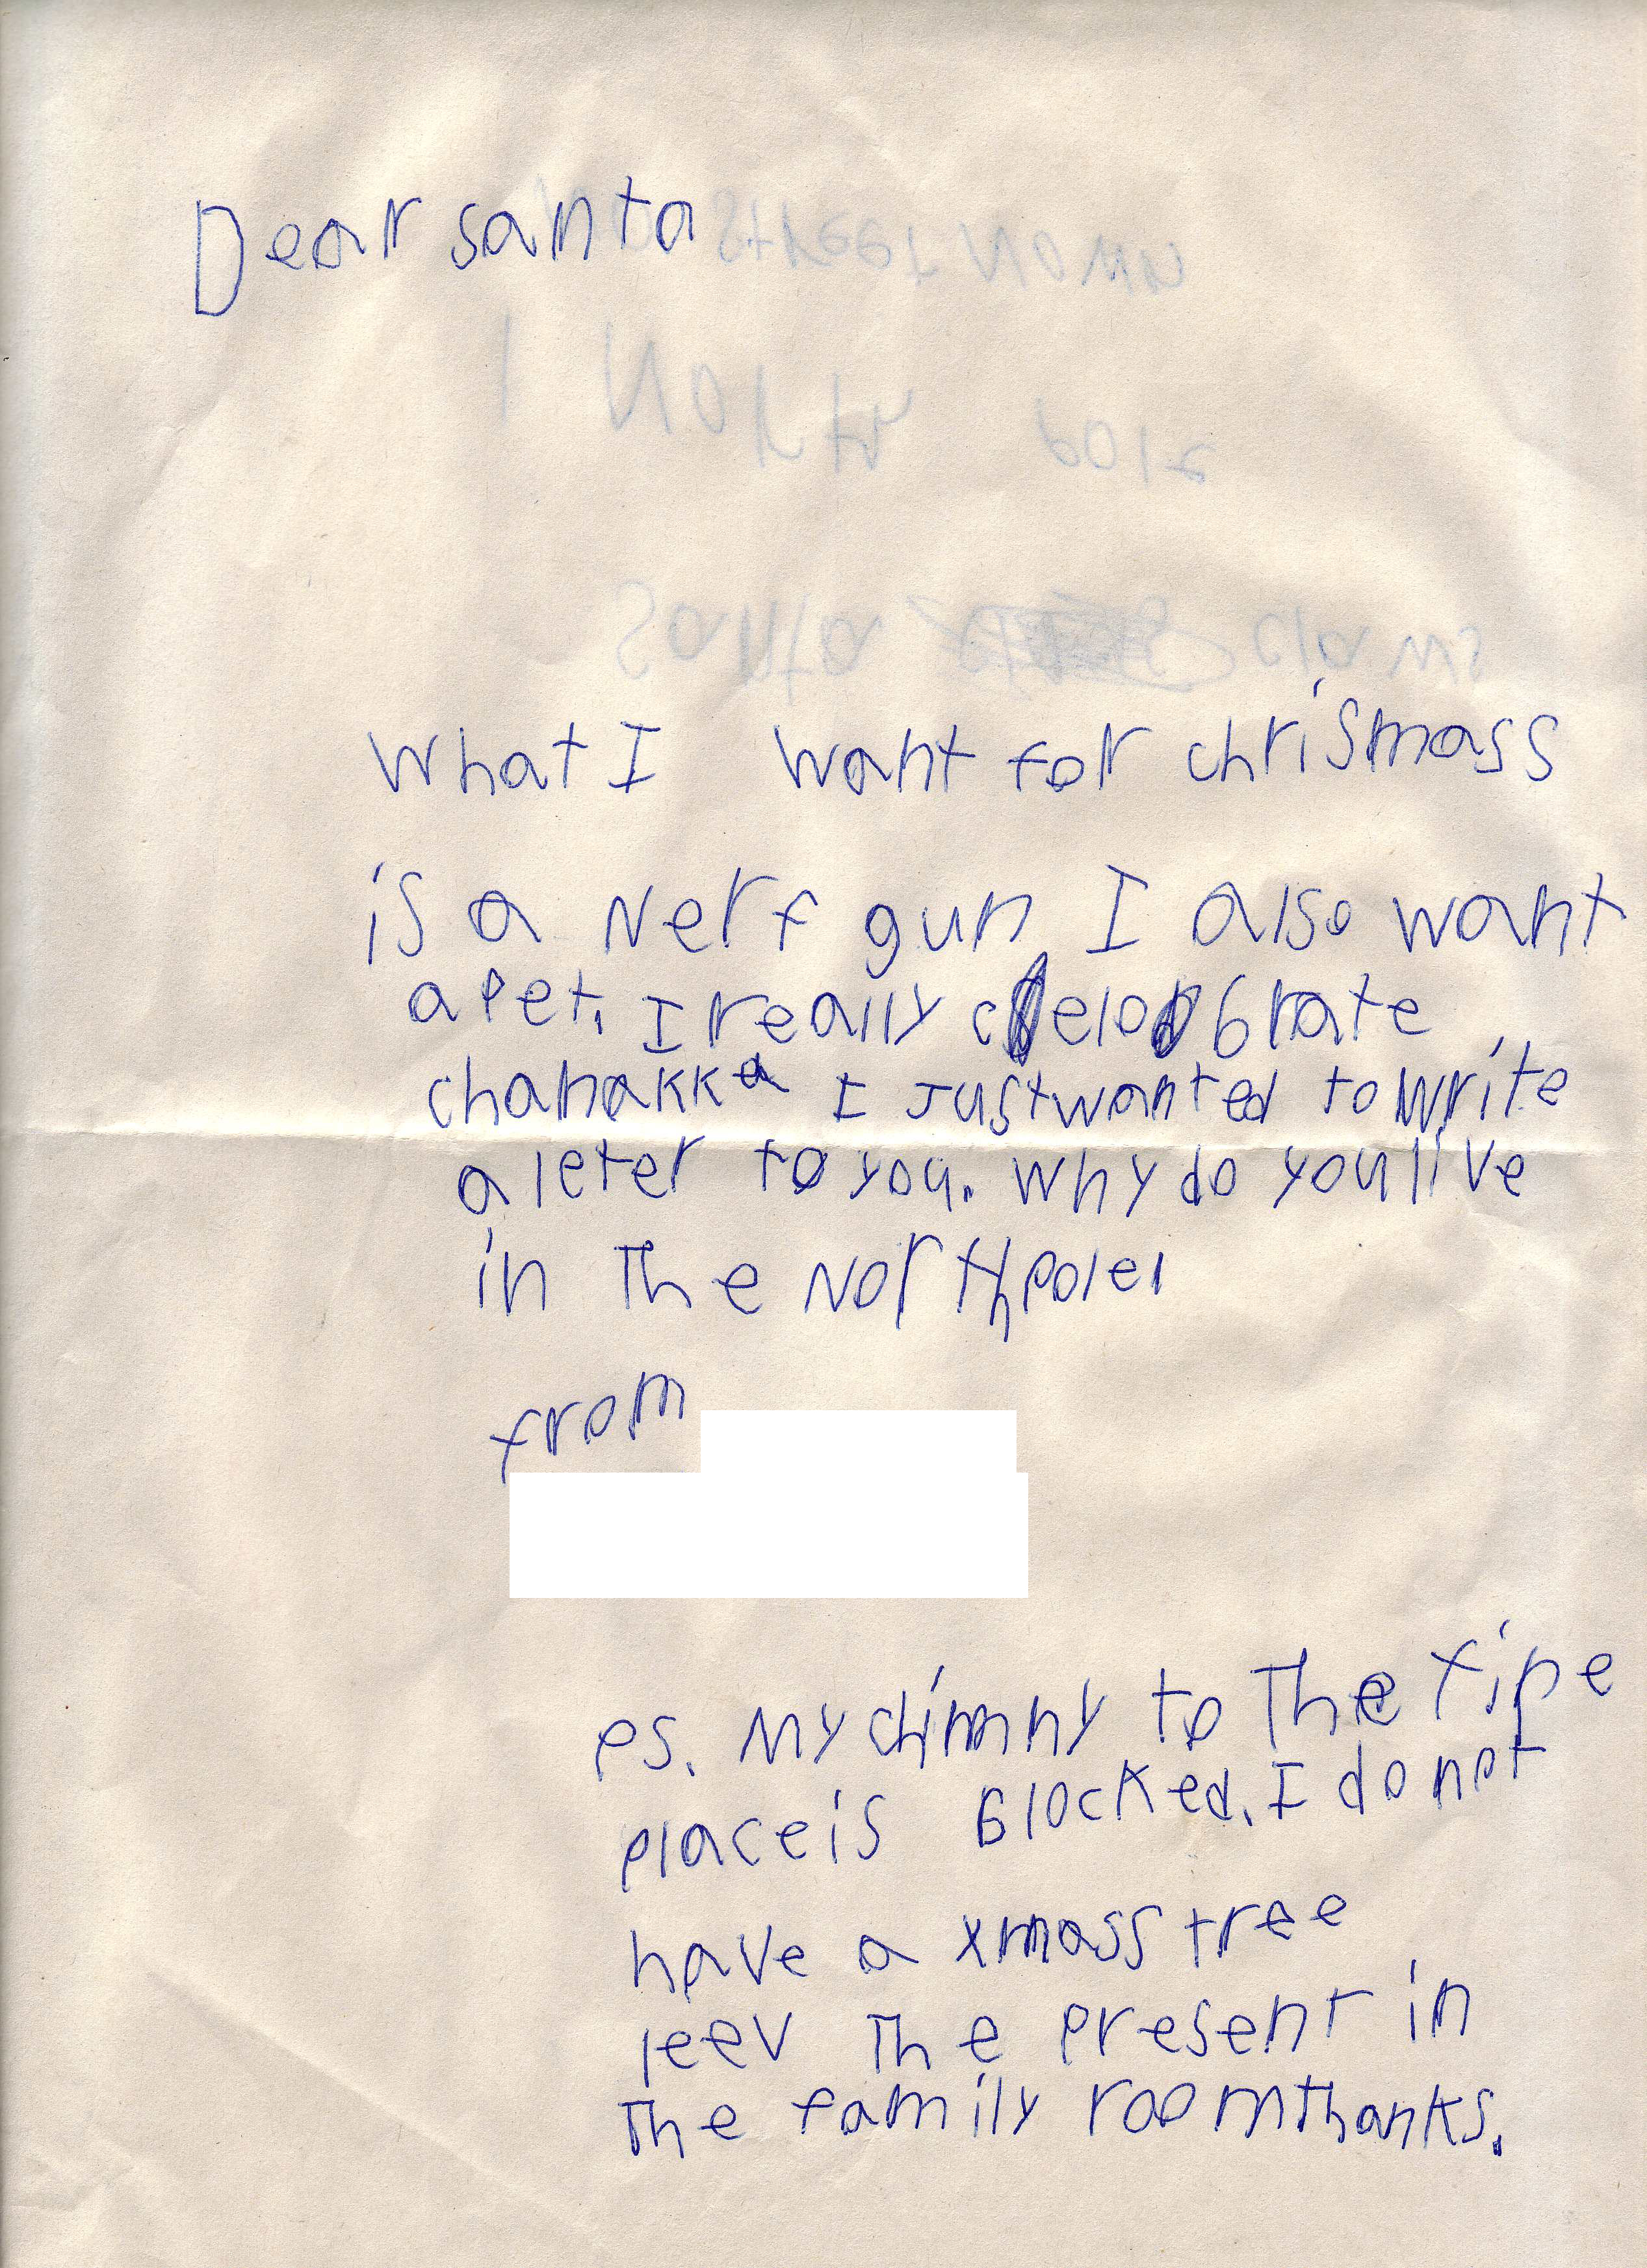 Dear santa
what I want for chrismass
is a Nerf gun I also want
a Pet. I really celebrate
chanakka I Just wanted to write
a leter to you. why do you live
in The North Pole
from
Ps. My chimny to The fipe
Place is Blocked. I do not
have a xmass tree
leev The Present in
The family room Thanks.